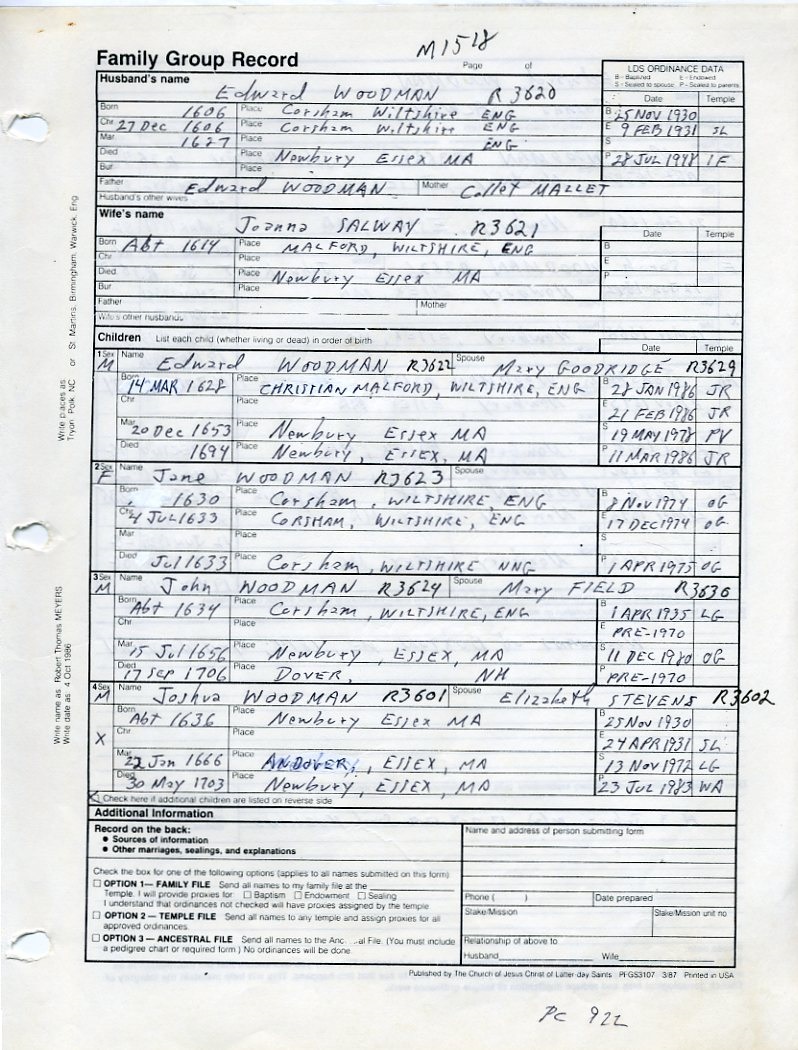 M1518
Family Group Record
Page of
LDS ORDINANCE DATA
B - Baptized E - Endowed
S - Sealed to spouse P - Sealed to parents
Husband's name
Edward WOODMAN R3620
Date Temple
Born 1606 Place Corsham Wiltshire ENG B 25 NOV 1930
Chr 27 Dec 1606 Place Corsham Wiltshire ENG E 9 FEB 1931 SL
Mar 1627 Place ENG S
Died Place Newbury Essex MA P 28 JUL 1948 IF
Bur Place
Father Edward WOODMAN Mother Collet MALLET
Husband's other wives
Wife's name
Joanna SALWAY R3621
Date Temple
Born Abt 1614 Place MALFORD, WILTSHIRE, ENG B
Chr Place E
Died Place Newbury Essex MA P
Bur Place
Father Mother
Wife's other husbands
Children List each child (whether living or dead) in order of birth
Date Temple
1 Sex M Name Edward WOODMAN R3622 Spouse Mary GOODRIDGE R3629
Born 14 MAR 1628 Place CHRISTIAN MALFORD, WILTSHIRE, ENG B 28 JAN 1986 JR
Chr Place E 21 FEB 1986 JR
Mar 20 Dec 1653 Place Newbury Essex MA S 19 MAY 1978 PV
Died 1694 Place Newbury, ESSEX, MA P 11 MAR 1986 JR
2 Sex F Name Jane WOODMAN R3623 Spouse
Born 1630 Place Corsham, WILTSHIRE, ENG B 8 NOV 1974 OG
Chr 4 JUL 1633 Place CORSHAM, WILTSHIRE, ENG E 17 DEC 1974 OG
Mar Place S
Died Jul 1633 Place Corsham, WILTSHIRE NNG P 1 APR 1975 OG
3 Sex M Name John WOODMAN R3624 Spouse Mary FIELD R3630
Born Abt 1634 Place Corsham, WILTSHIRE, ENG B 1 APR 1935 LG
Chr Place E PRE-1970
Mar 15 Jul 1656 Place Newbury, ESSEX, MA S 11 DEC 1980 OG
Died 17 SEP 1706 Place DOVER, NH P PRE-1970
4 Sex M Name Joshua WOODMAN R3601 Spouse Elizabeth STEVENS R3602
Born Abt 1636 Place Newbury Essex MA B 25 Nov 1930
X Chr Place E 24 APR 1931 SL
Mar 22 Jan 1666 Place ANDOVER, ESSEX, MA S 13 NOV 1972 LG
Died 30 May 1703 Place Newbury, ESSEX, MA P 23 JUL 1983 WA
Check here if additional children are listed on reverse side
Additional Information
Record on the back:
• Sources of information
• Other marriages, sealings, and explanations
Check the box for one of the following options (applies to all names submitted on this form)
OPTION 1— FAMILY FILE Send all names to my family file at the
Temple. I will provide proxies for: Baptism Endowment Sealing
I understand that ordinances not checked will have proxies assigned by the temple
OPTION 2 – TEMPLE FILE Send all names to any temple and assign proxies for all
approved ordinances.
OPTION 3 – ANCESTRAL FILE Send all names to the Anc al File. (You must include
a pedigree chart or required form.) No ordinances will be done.
Name and address of person submitting form
Phone ( ) Date prepared
Stake/Mission Stake/Mission unit no
Relationship of above to
Husband Wife
Published by The Church of Jesus Christ of Latter-day Saints PFGS3107 3/87 Printed in USA
PC 922
Write places as
Tryon Polk NC or St Martins, Birmingham, Warwick, Eng
Write name as Robert Thomas MEYERS
Write date as 4 Oct 1986